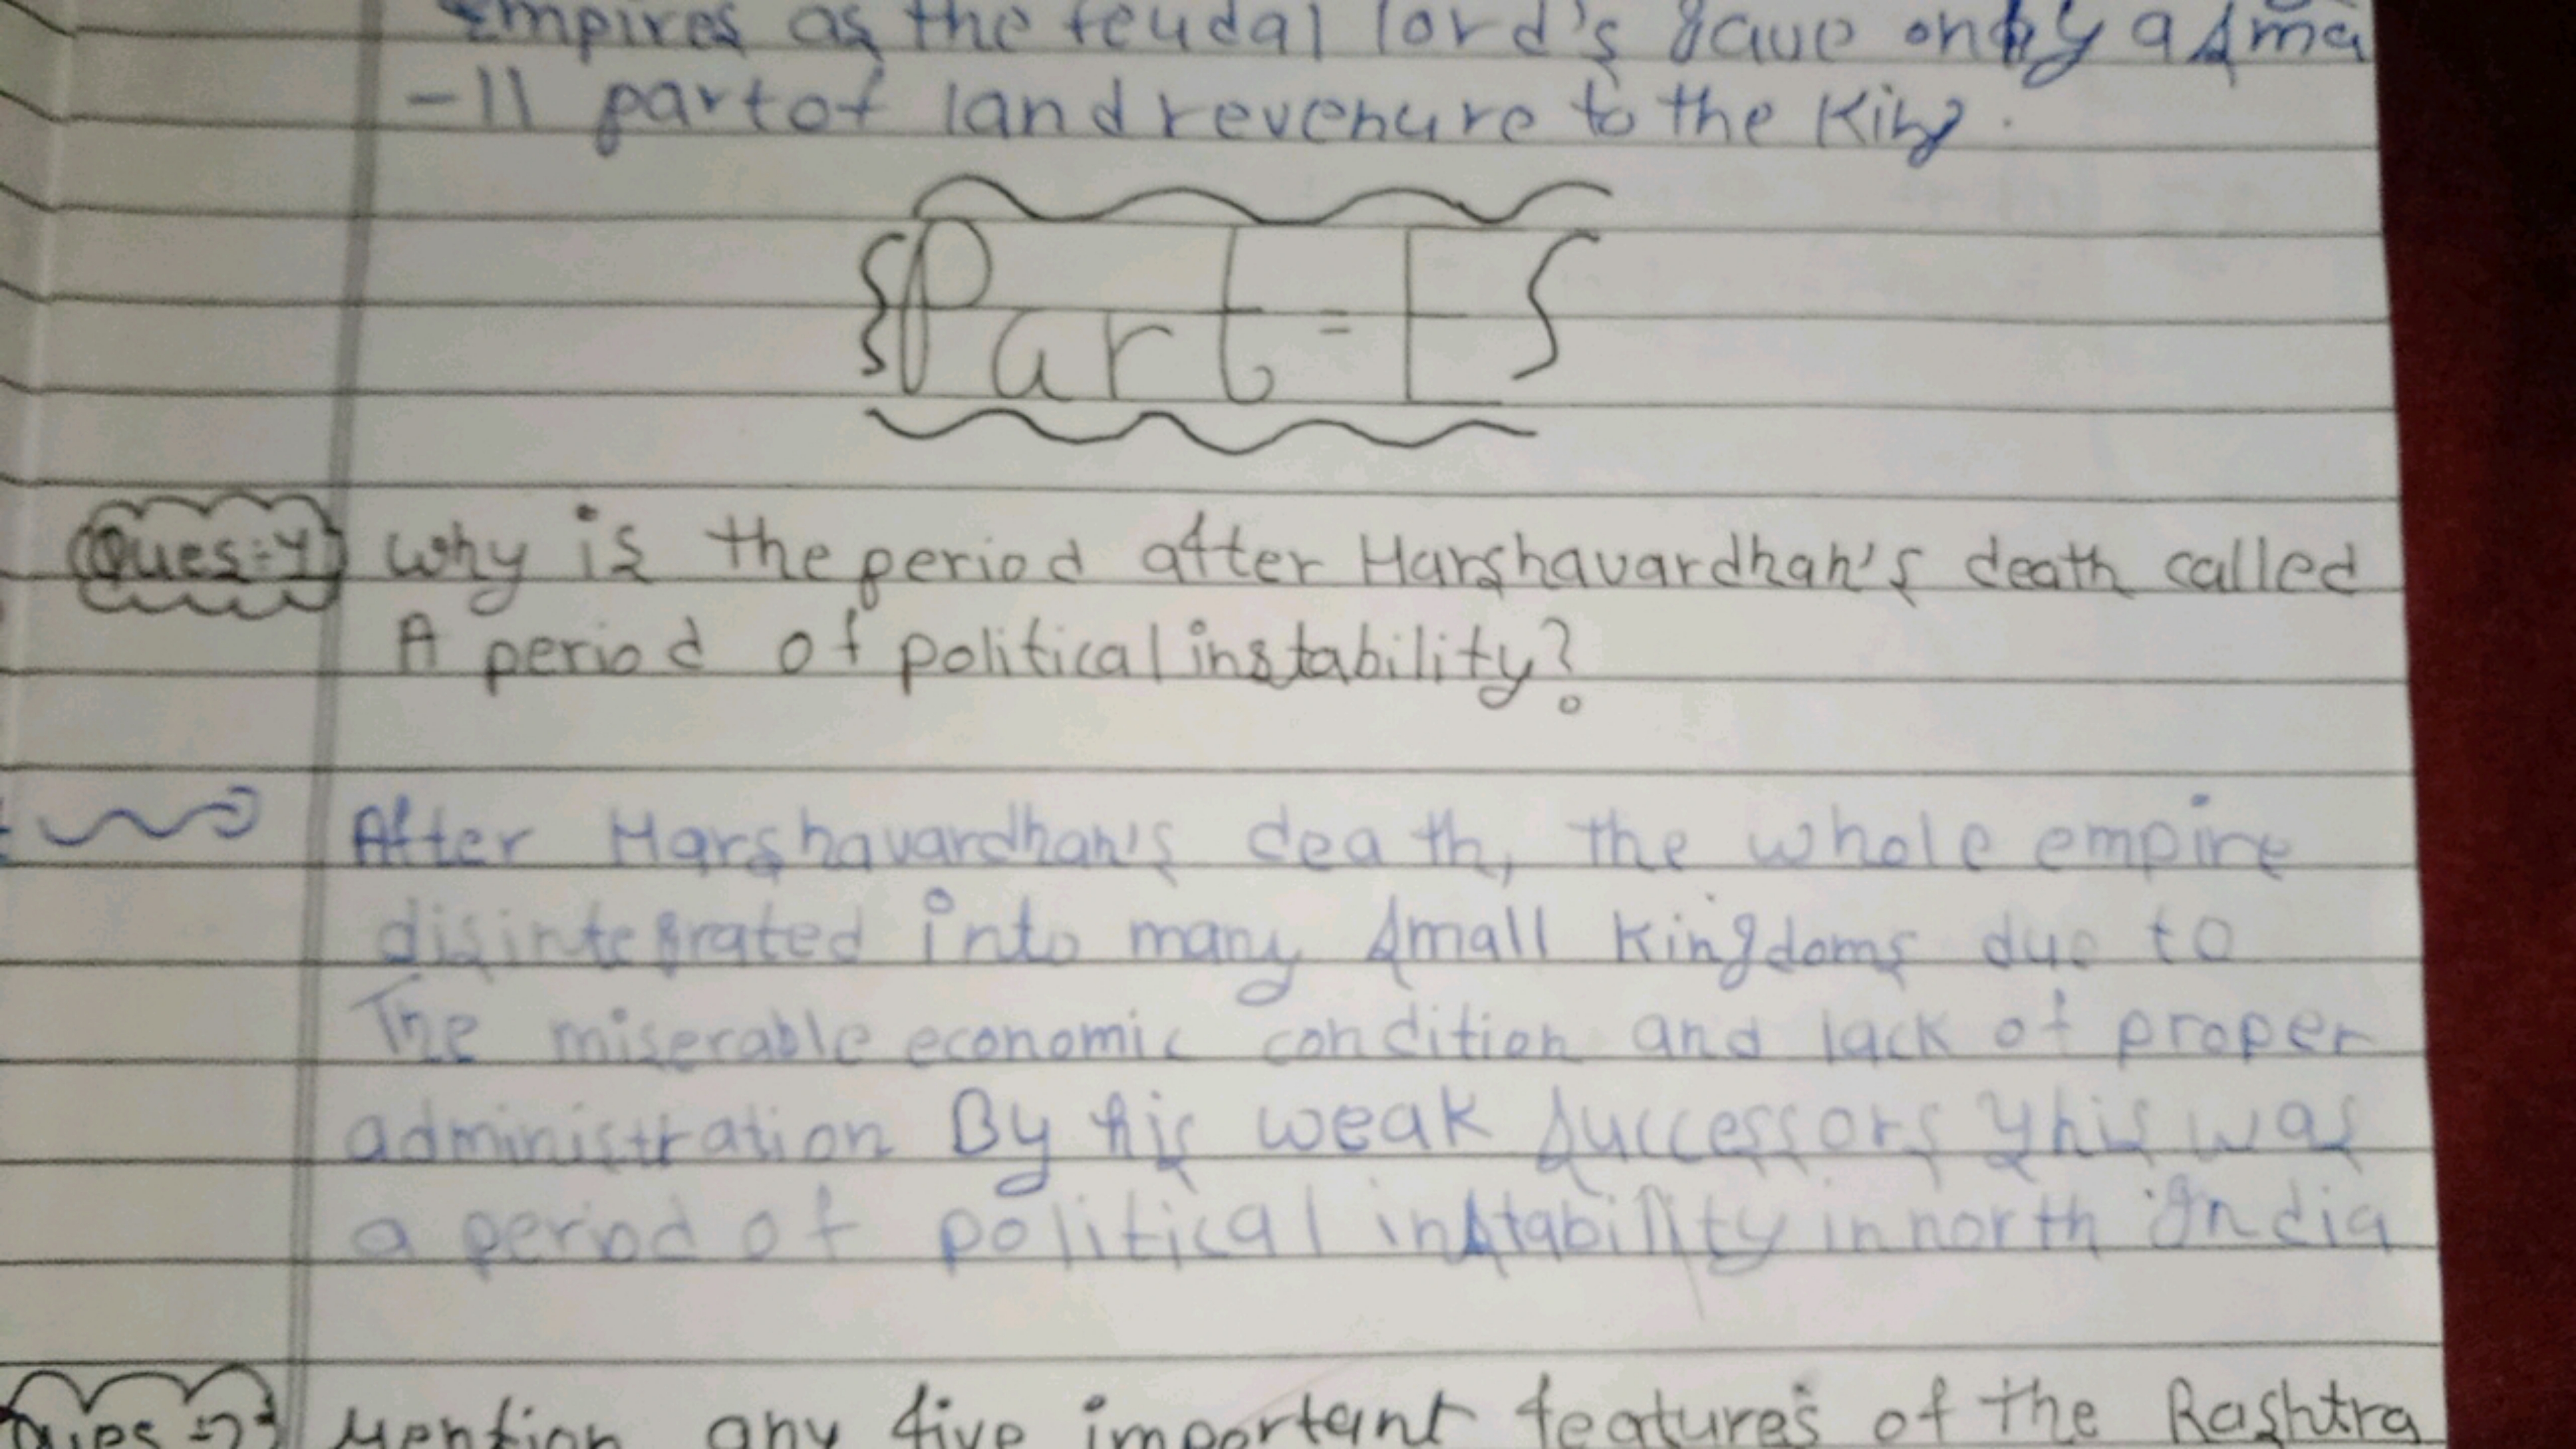 empires as the feudal lord's gave only a sma
-ll part of land revenure to the King.
Part-E
Ques:-1 Why is the period after Harshavardhan's death called
A period of political instability?
After Harshavardhan's death, the whole empire
disintegrated into many small kingdoms due to
The miserable economic condition and lack of proper
administration By his weak successors This was
a period of political instability in north India
Ques :-2 Mention any five important features of the Rashtra